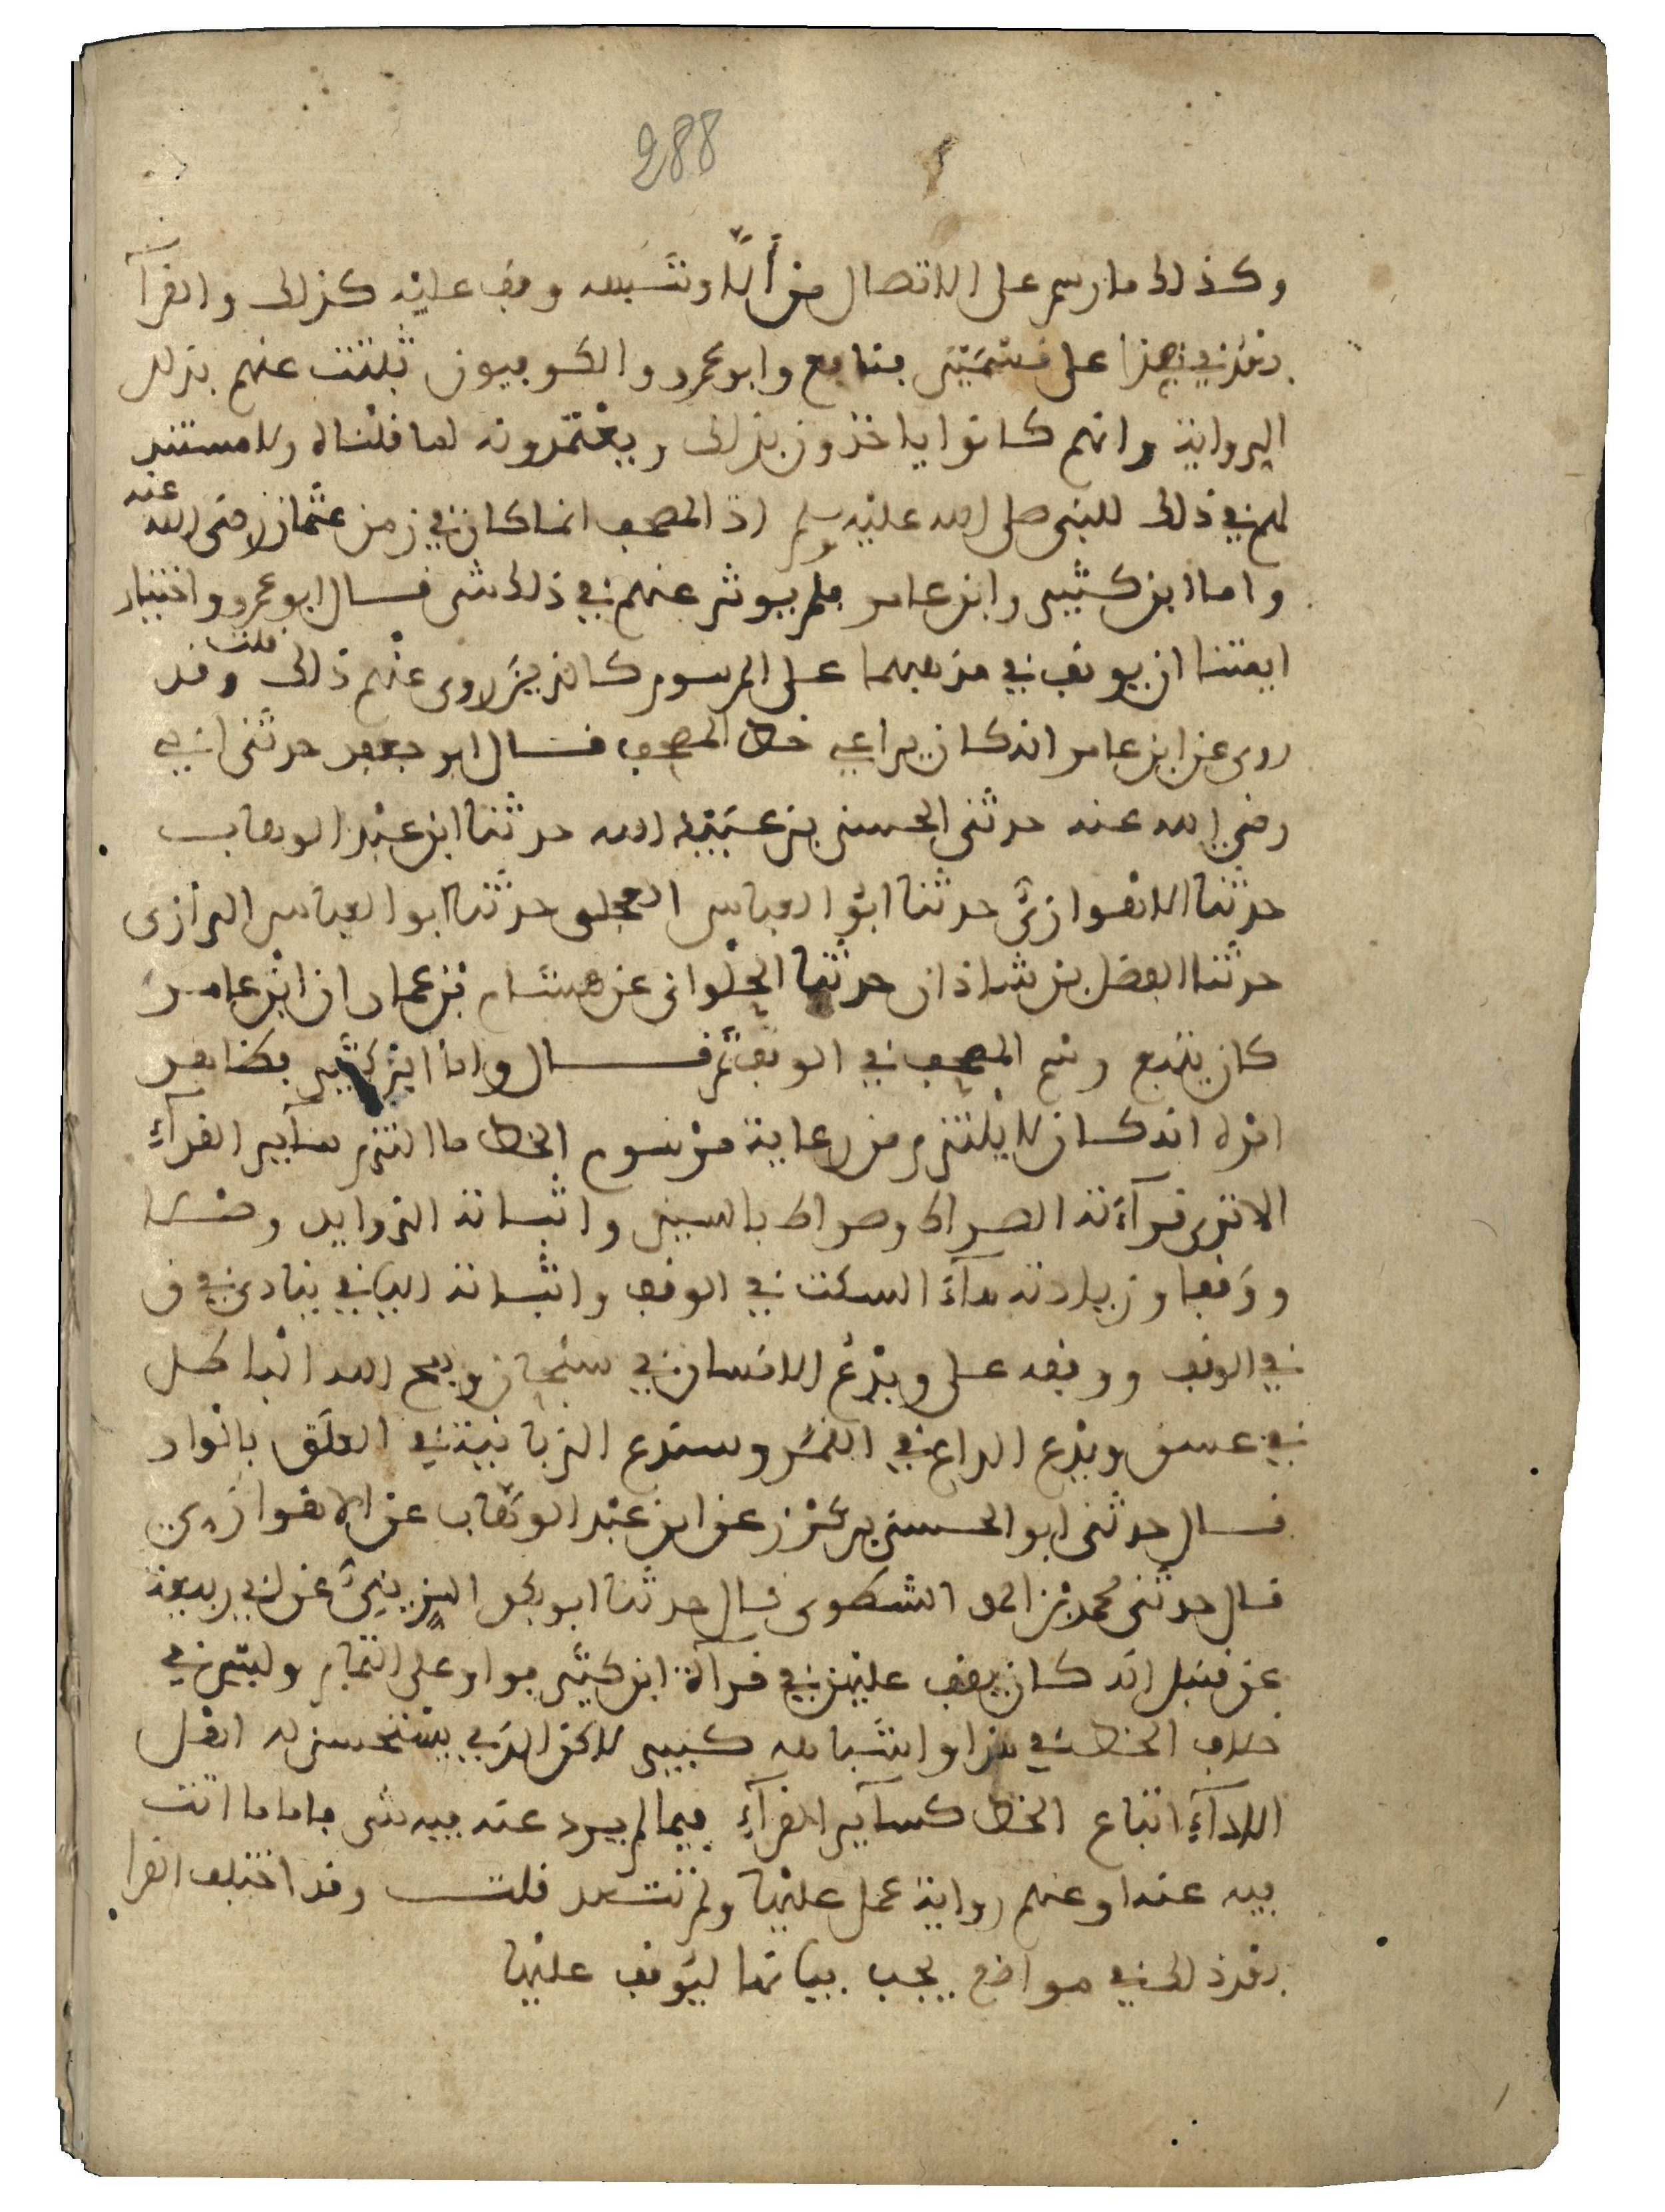 288
وكذلك ما رسم على الاتصال من ألا وشبهه وقف عليه كذلك والقرآ
في هذا على قسمين فنافع وابو عمرو والكوفيون ثبتت عنهم بذلك
الرواية وانهم كانوا ياخذون بذلك ويعتمدونه لما قلناه ولا مستند
لهم في ذلك للنبى صلى الله عليه وسلم اذ المصحف انما كان في زمن عثمان رضى الله عنه
واما ابن كثير وابن عامر فلم يوثر عنهم في ذلك شى قال ابو عمرو واختيار
ايمتنا ان يوقف في مذهبهما على المرسوم كالذين روى عنهم ذلك قلت وقد
روى عن ابن عامر انه كان يراعي خط المصحف قال ابو جعفر حدثنى ابي
رضي الله عنه حدثنى الحسين بن عبيد الله حدثنا ابن عبد الوهاب
حدثنا الاهوازى حدثنا ابو العباس العجلى حدثنا ابو العباس الرازى
حدثنا الفضل بن شاذان حدثنا الحلوانى عن هشام بن عمار ان ابن عامر
كان يتبع رسم المصحف في الوقف ثم قال واما ابن كثير فظاهر
امره انه كان لا يلتزم من رعاية مرسوم الخط ما التزم سآير القرآء
الا ترى قرآءته الصراط وصراط بالسين واثباته الزوايد وصلا
ووقفا وزيادته هآء السكت في الوقف واثباته اليا في ينادى في ق
في الوقف ووقفه على ويدع الانسان في سبحان ويمح الله الباطل
في عسق ويدع الداع في القمر وسندع الزبانية في العلق بالواو
قال حدثنى ابو الحسن بن كرز عن ابن عبد الوهاب عن الاهوازي
قال حدثنى محمد بن احمد الشطوى قال حدثنا ابو بكر الزينبى عن ابي ربيعة
عن قنبل انه كان يقف عليهن في قرآة ابن كثير بواو على التمام وليس في
خلاف الخط في هذا واشباهه كبير لاكن الذي يستحسن له اهل
الادآء اتباع الخط كسآير القرآء فيما لم يرد عنه فيه شى فاما ما اتت
فيه عنه او عنهم رواية عمل عليها ولم تتعد قلت وقد اختلف القرا
ذلك في مواضع يجب بيانها ليوقف عليها